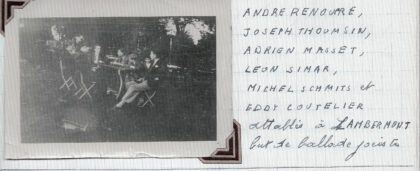 ANDRE RENOUPRE,
JOSEPH THOUMSIN,
ADRIEN MASSET,
LEON SIMAR,
MICHEL SCHMITS et
EDDY COUTELIER
attablés à LAMBERMONT
but de ballade jociste